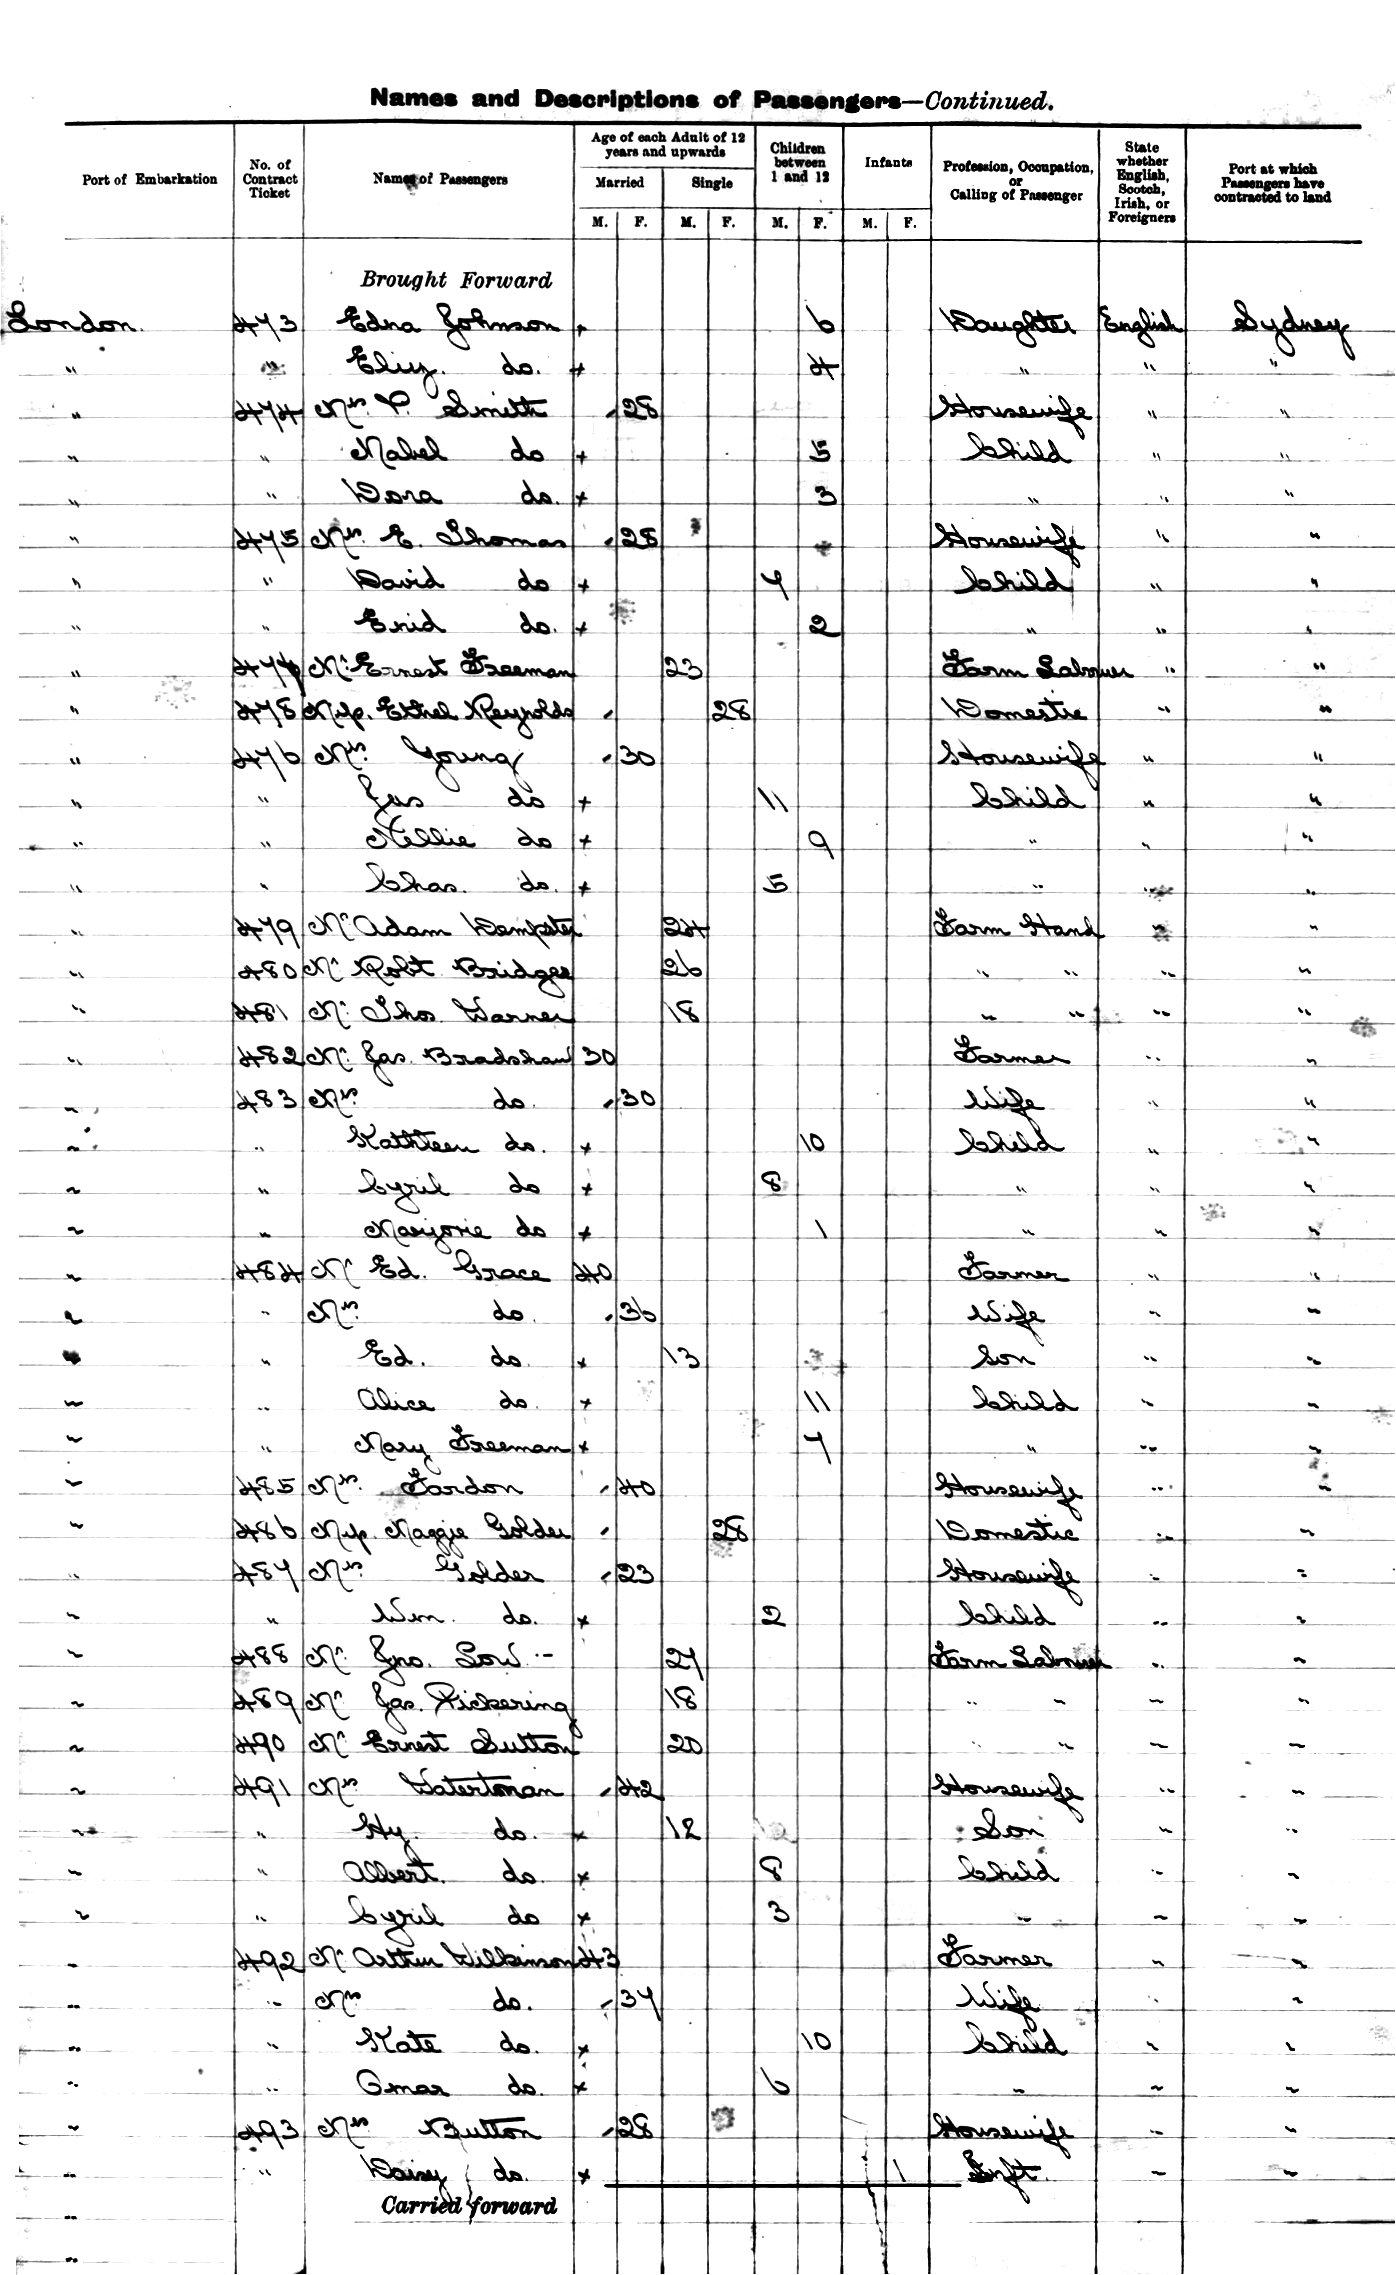 Names and Descriptions of Passengers—Continued.
Port of Embarkation | No. of Contract Ticket | Names of Passengers | Age of each Adult of 12 years and upwards | Children between 1 and 12 | Infants | Profession, Occupation, or Calling of Passenger | State whether English, Scotch, Irish, or Foreigners | Port at which Passengers have contracted to land
Married Single
M. F. M. F. M. F. M. F.
Brought Forward
London. 473 Edna Johnson + 6 Daughter English Sydney
" " Eliz. do. + 4 " " "
" 474 Mrs. P. Smith - 28 Housewife " "
" " Mabel do + 5 Child " "
" " Dora do. + 3 " " "
" 475 Mrs. E. Thomas - 28 Housewife " "
" " David do + 7 Child " "
" " Enid do. + 2 " " "
" 477 Mr. Ernest Freeman 23 Farm Labourer " "
" 478 Miss. Ethel Reynolds - 28 Domestic " "
" 476 Mrs. Young - 30 Housewife " "
" " Jas do + 11 Child " "
" " Nellie do + 9 " " "
" " Chas. do. + 5 " " "
" 479 Mr Adam Dempster 24 Farm Hand " "
" 480 Mr Robt Bridges 26 " " " "
" 481 Mr. Thos. Warner 18 " " " "
" 482 Mr. Jas. Bradshaw 30 Farmer " "
" 483 Mrs. do. - 30 Wife " "
" " Kathleen do. + 10 Child " "
" " Cyril do + 8 " " "
" " Marjorie do + 1 " " "
" 484 Mr Ed. Grace 40 Farmer " "
" " Mrs. do. - 36 Wife " "
" " Ed. do. + 13 Son " "
" " Alice do. + 11 Child " "
" " Mary Freeman + 7 " " "
" 485 Mrs. Fardon - 40 Housewife " "
" 486 Miss. Maggie Golder - 28 Domestic " "
" 487 Mrs. Golder - 23 Housewife " "
" " Wm. do. + 2 Child " "
" 488 Mr. Jno. Low 27 Farm Labourer " "
" 489 Mr Jas. Pickering 18 " " " "
" 490 Mr Ernest Sutton 20 " " " "
" 491 Mrs. - 42 Housewife " "
" " Hy. do. + 12 Son " "
" " Albert. do. + 8 Child " "
" " Cyril do + 3 " " "
" 492 Mr Arthur Wilkinson 43 Farmer " "
" " Mrs do. - 37 Wife " "
" " Kate do. + 10 Child " "
" " Omar do. + 6 " " "
" 493 Mrs Button - 28 Housewife " "
" " Daisy do. + 1 Inft. " "
" Carried forward
"